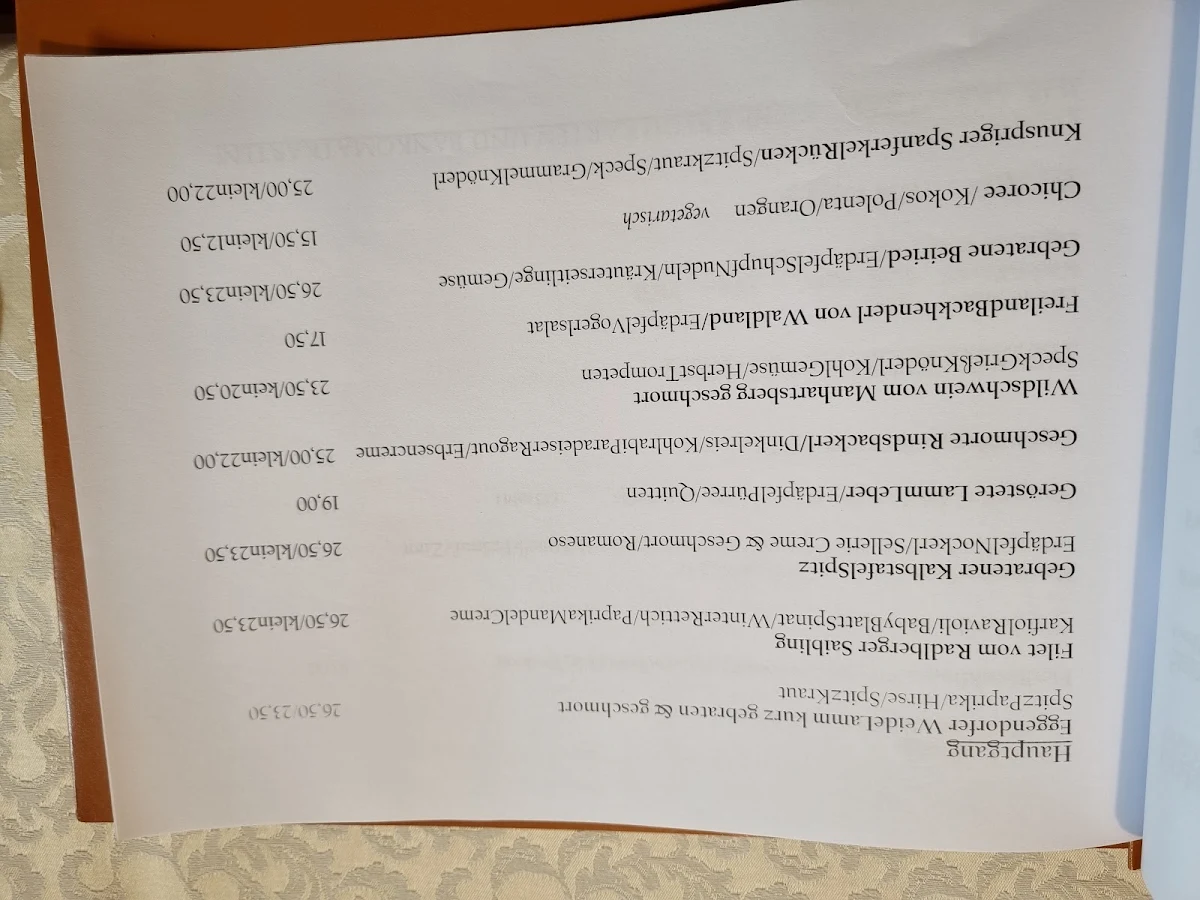 Hauptgang
Eggendorfer WeideLamm kurz gebraten & geschmort
SpitzPaprika/Hirse/SpitzKraut 26,50/23,50
Filet vom Radlberger Saibling
KarfiolRavioli/BabyBlattSpinat/WinterRettich/PaprikaMandelCreme 26,50/klein23,50
Gebratener KalbstafelSpitz
ErdäpfelNockerl/Sellerie Creme & Geschmort/Romaneso 26,50/klein23,50
Geröstete LammLeber/ErdäpfelPürree/Quitten 19,00
Geschmorte Rindsbackerl/Dinkelreis/KohlrabiParadeiserRagout/Erbsencreme 25,00/klein22,00
Wildschwein vom Manhartsberg geschmort
SpeckGrießKnöderl/KohlGemüse/HerbstTrompeten 23,50/kein20,50
FreilandBackhenderl von Waldland/ErdäpfelVogerlsalat 17,50
Gebratene Beiried/ErdäpfelSchupfNudeln/Kräuterseitlinge/Gemüse 26,50/klein23,50
Chicoree /Kokos/Polenta/Orangen vegetarisch 15,50/klein12,50
Knuspriger SpanferkelRücken/Spitzkraut/Speck/GrammelKnöderl 25,00/klein22,00